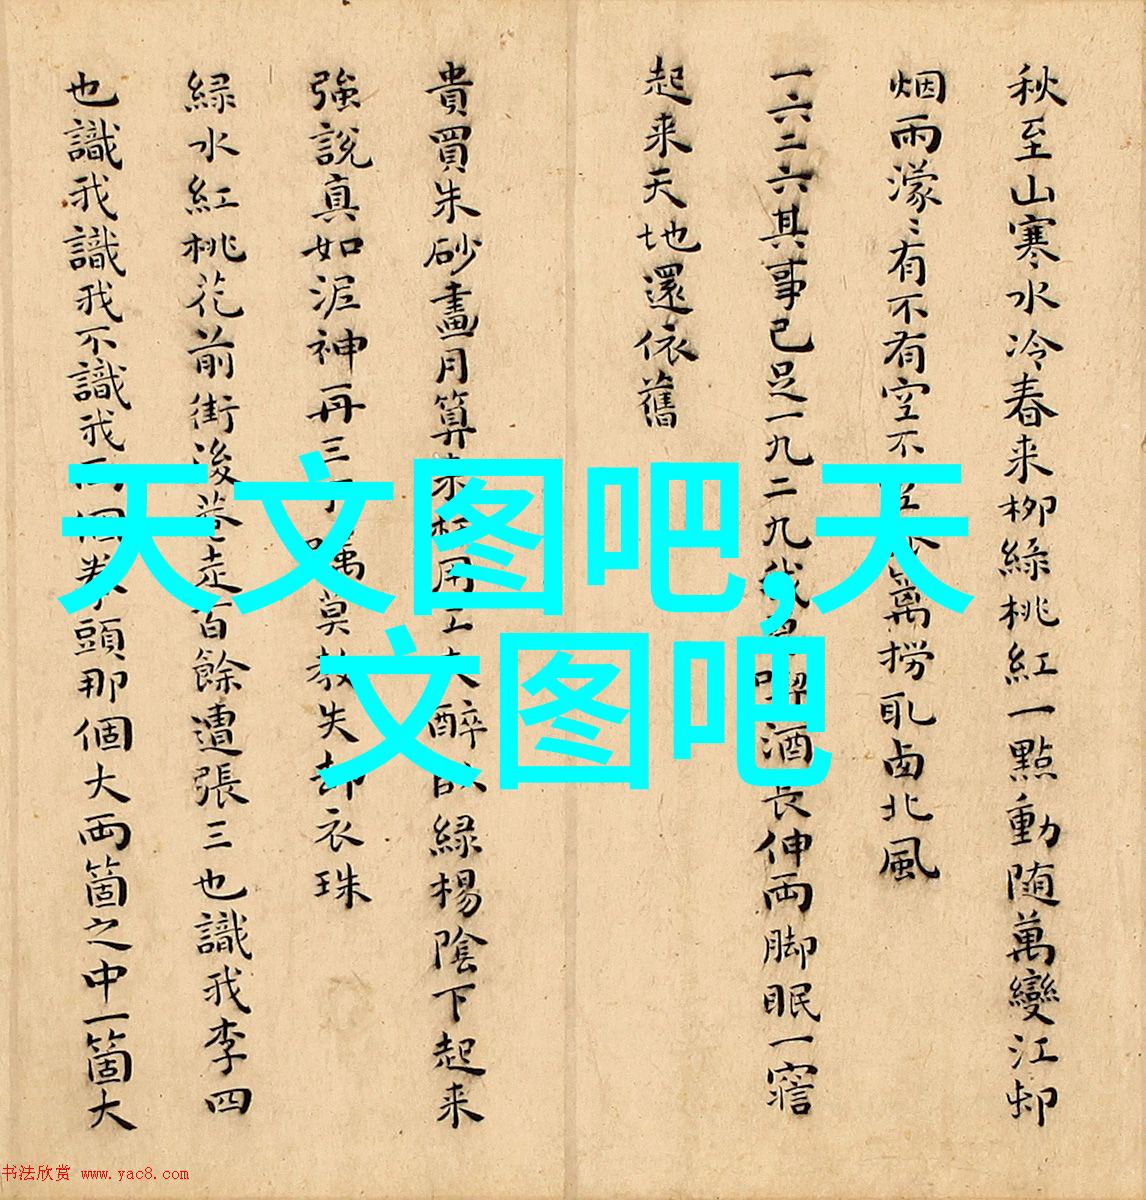 秋至山寒水冷春来柳綠桃紅一點動随萬變江邨
烟雨濛〻有不有空不萬撈耴卤北風
一六二六其事已足一九二九我喫酒長伸両脚眠一寤
起来天地還依舊
貴買朱砂畫月算来用工夫醉卧緑楊陰下起来
強説真如泥神再三嘱莫教失却衣珠
緑水紅桃花前街後巷走百餘遭張三也識我李四
也識我識我不識我両個拳頭那個大両箇之中一箇大
天文图吧,天
文图吧
书法欣赏 www.yac8.com